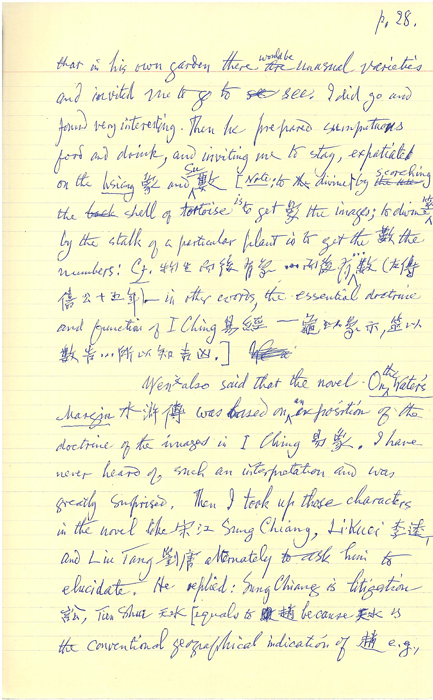 p. 28.
that in his own garden there would be unusual varieties
and invited me to go to see. I did go and
found very interesting. Then he prepared sumptuous
food and drink, and inviting me to stay, expatiated
on the hsiang 象 and su 數 [Note: to divine by scorching
the shell of tortoise is to get 象 the images; to divine 筮
by the stalk of a particular plant is to get the 數 the
numbers: Cf. 物生而後有象 … 而後有…數 (左傳
僖公十五年) — in other words, the essential doctrine
and function of I Ching 易經 — 龜以象示, 筮以
數告 … 所以知吉凶.]
Wen also said that the novel On the Waters
Margin 水滸傳 was based on an exposition of the
doctrine of the images in I Ching 易象. I have
never heard of such an interpretation and was
greatly surprised. Then I took up those characters
in the novel like 宋江 Sung Chiang, Li Kuei 李逵
and Liu Tang 劉唐 alternately to ask him to
elucidate. He replied: Sung Chiang is litigation
訟, Tien Shui 天水 [equals to 趙 because 天水 is
the conventional geographical indication of 趙 e.g.,